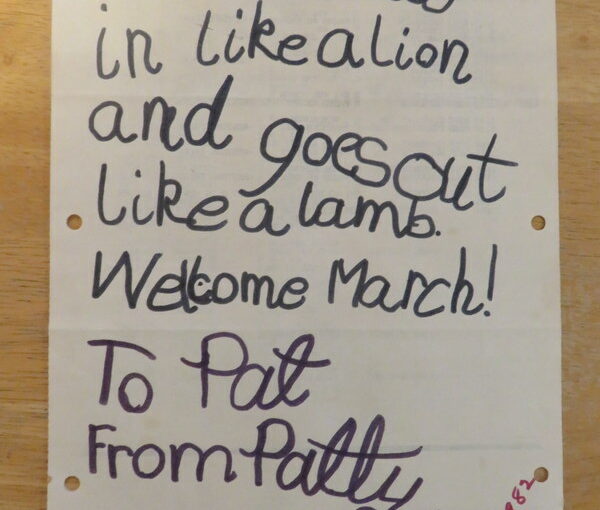 in like a lion
and goes out
like a lamb.
Welcome March!
To Pat
From Patty
982